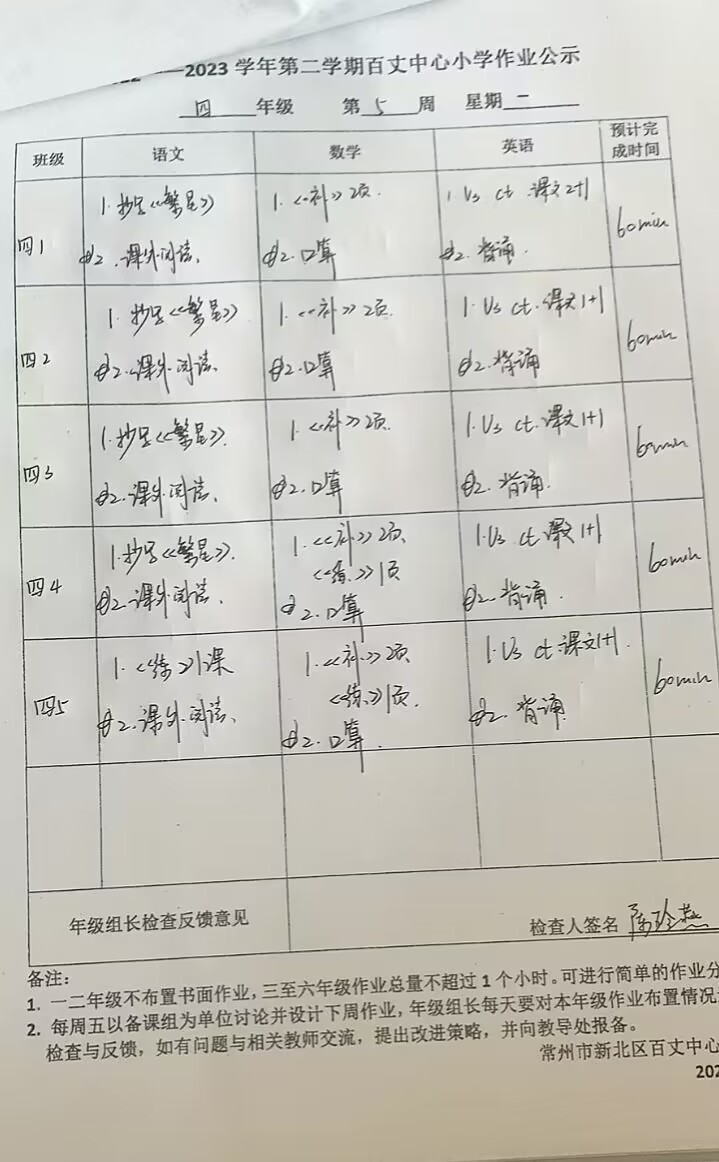 ——2023 学年第二学期百丈中心小学作业公示
四 年级 第 5 周 星期 二
班级 语文 数学 英语 预计完成时间
四1
1. 抄写《繁星》
2. 课外阅读、
1. 《补》2页.
2. 口算
1 U3 ct 课文2+1
2. 背诵.
60min
四2
1. 抄写《繁星》
2. 课外阅读、
1. 《补》2页
2. 口算
1. U3 ct. 课文1+1
2. 背诵
60min
四3
1. 抄写《繁星》.
2. 课外阅读、
1. 《补》2页.
2. 口算
1. U3 ct. 课文1+1
2. 背诵.
60min
四4
1. 抄写《繁星》.
2. 课外阅读、
1. 《补》2页、
《练》1页
2. 口算
1. U3 ct 课文1+1
2. 背诵.
60min
四5
1. 《练》1课
2. 课外阅读、
1. 《补》2页、
《练》1页.
2. 口算.
1. U3 ct 课文1+1.
2. 背诵
60min
年级组长检查反馈意见
检查人签名 陈玲燕
备注：
1. 一二年级不布置书面作业，三至六年级作业总量不超过 1 个小时。可进行简单的作业分
2. 每周五以备课组为单位讨论并设计下周作业，年级组长每天要对本年级作业布置情况
检查与反馈，如有问题与相关教师交流，提出改进策略，并向教导处报备。
常州市新北区百丈中心
202